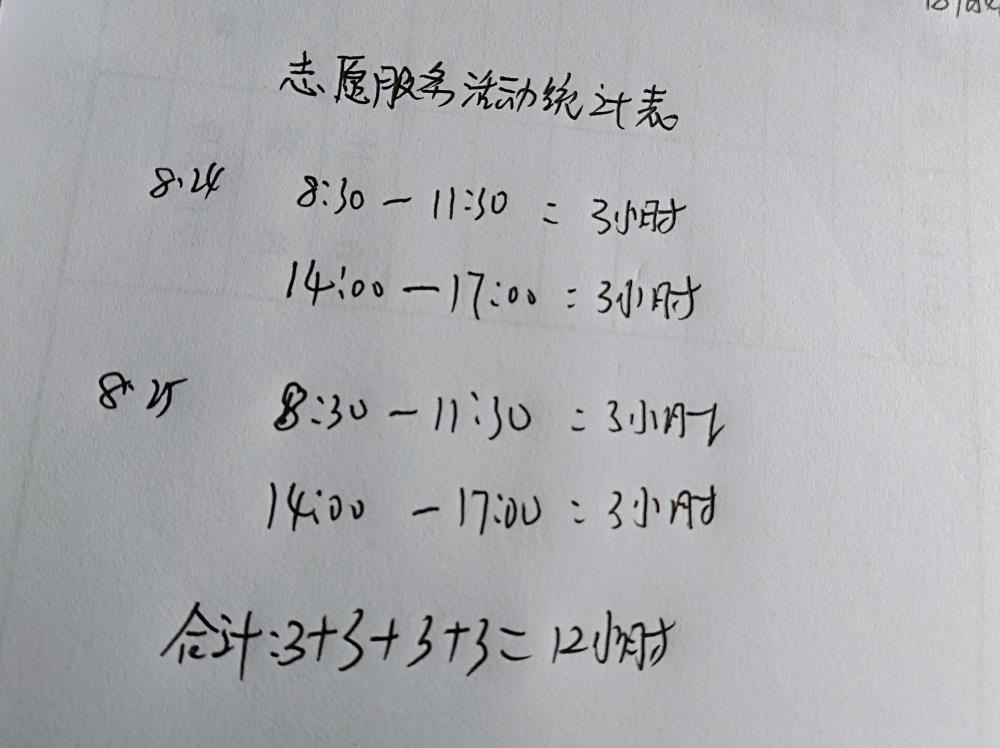 志愿服务活动统计表
8.24 8:30 - 11:30 = 3小时
14:00 - 17:00 = 3小时
8.25 8:30 - 11:30 = 3小时
14:00 - 17:00 = 3小时
合计:3+3+3+3=12小时